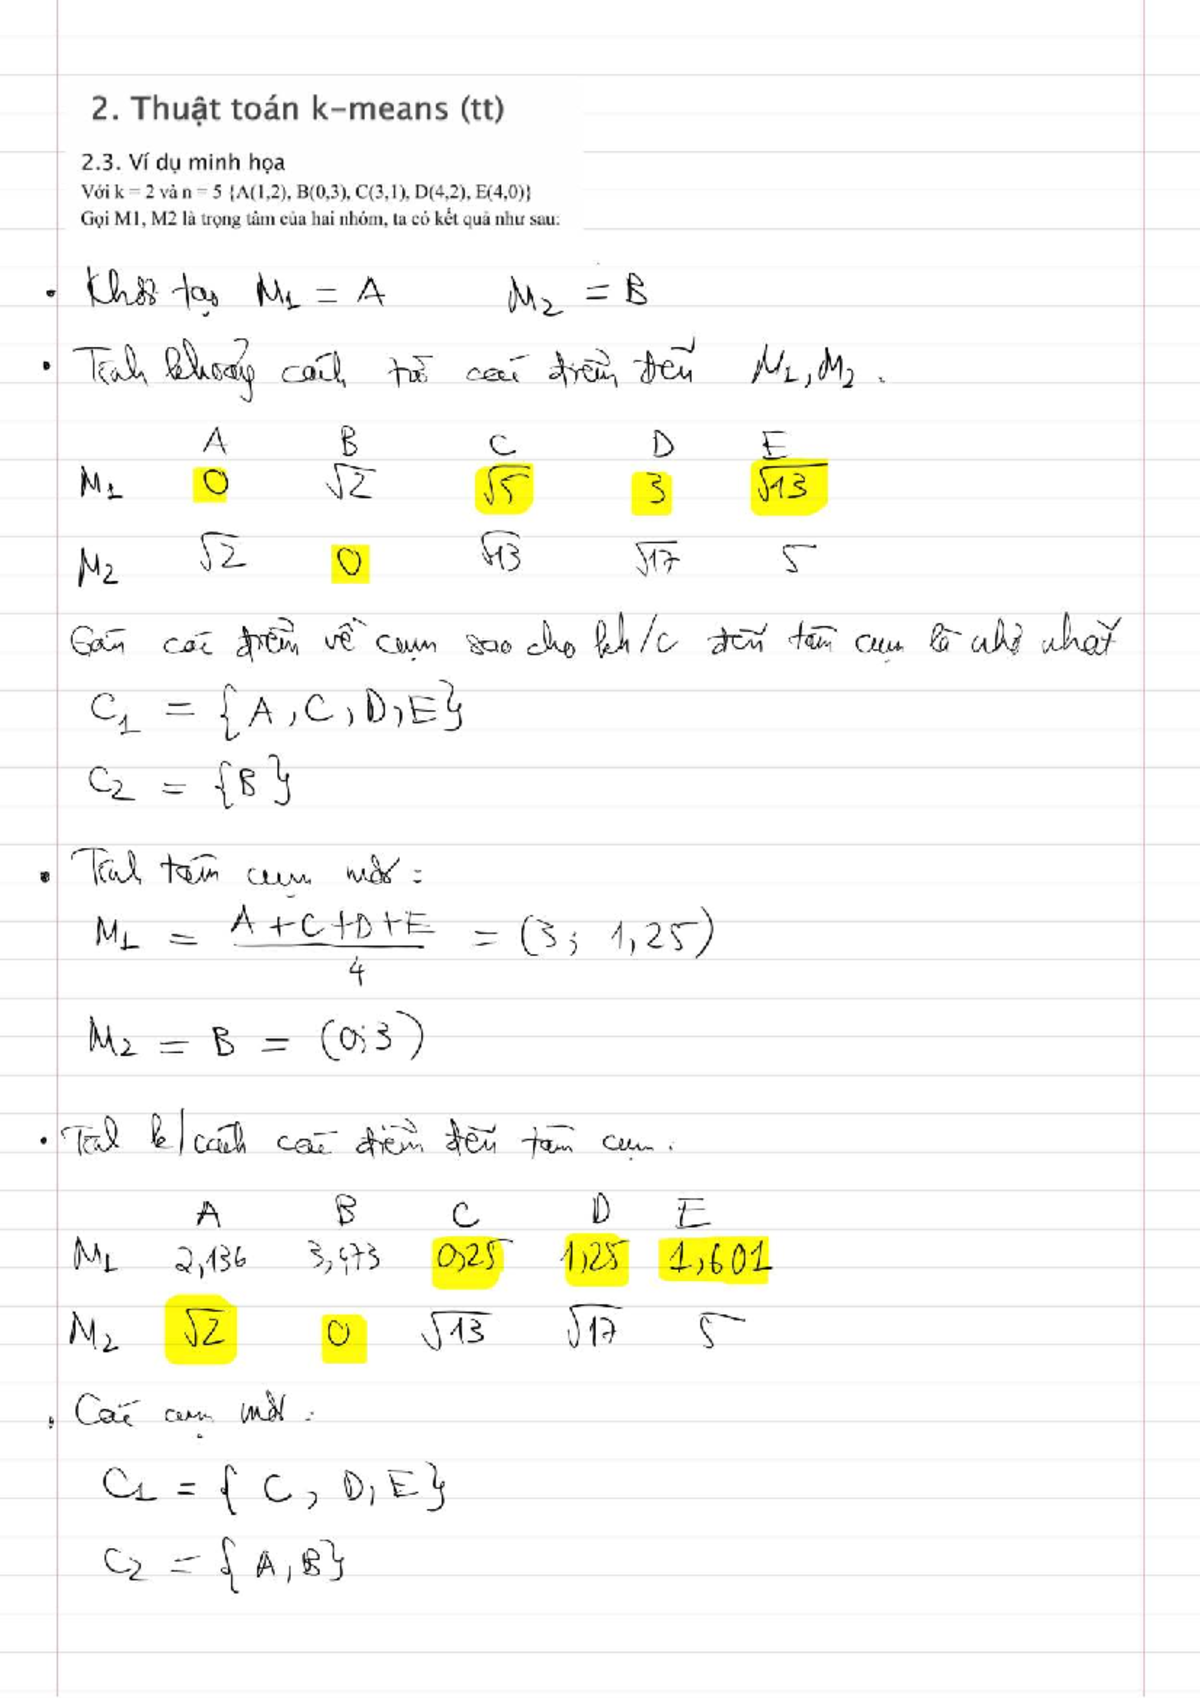 2. Thuật toán k-means (tt)
2.3. Ví dụ minh họa
Với k = 2 và n = 5 {A(1,2), B(0,3), C(3,1), D(4,2), E(4,0)}
Gọi M1, M2 là trọng tâm của hai nhóm, ta có kết quả như sau:
• Khởi tạo M₁ = A M₂ = B
• Tính khoảng cách từ các điểm đến M₁, M₂.
A B C D E
M₁ 0 √2 √5 3 √13
M₂ √2 0 √13 √17 5
Gán các điểm về cụm sao cho kh/c đến tâm cụm là nhỏ nhất
C₁ = {A, C, D, E}
C₂ = {B}
• Tính tâm cụm mới:
M₁ = (A+C+D+E)/4 = (3; 1,25)
M₂ = B = (0;3)
• Tính k/cách các điểm đến tâm cụm.
A B C D E
M₁ 2,136 3,473 0,25 1,25 1,601
M₂ √2 0 √13 √17 5
• Các cụm mới:
C₁ = {C, D, E}
C₂ = {A, B}